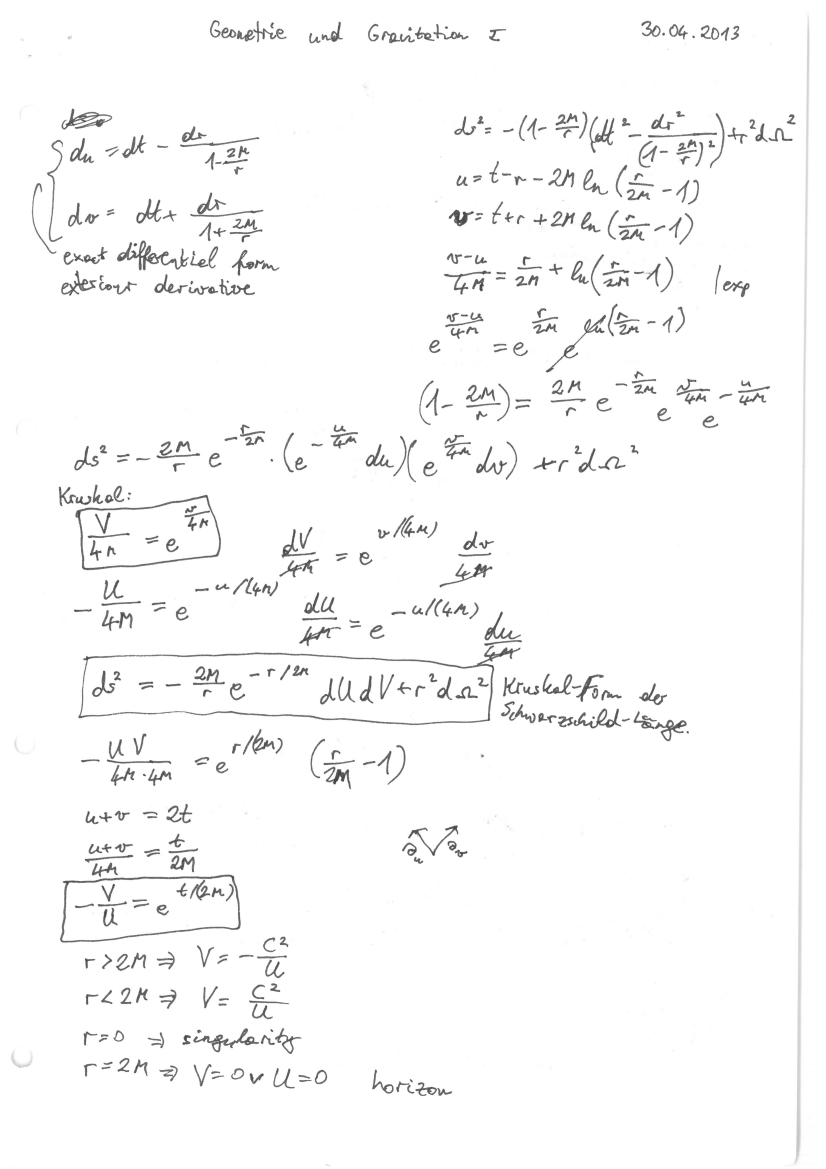 Geometrie und Gravitation I 30.04.2013
du = dt - dr/(1 - 2M/r)
dv = dt + dr/(1 + 2M/r)
exact differentiel form
exteriour derivative
ds² = -(1 - 2M/r)(dt² - dr²/(1 - 2M/r)²) + r²dΩ²
u = t - r - 2M ln(r/2M - 1)
v = t + r + 2M ln(r/2M - 1)
(v-u)/4M = r/2M + ln(r/2M - 1) |exp
e^((v-u)/4M) = e^(r/2M) e^(ln(r/2M - 1))
(1 - 2M/r) = 2M/r e^(-r/2M) e^(v/4M) e^(-u/4M)
ds² = - 2M/r e^(-r/2M) · (e^(-u/4M) du)(e^(v/4M) dv) + r²dΩ²
Kruskal:
V/4M = e^(v/4M) dV/4M = e^(v/(4M)) dv/4M
- U/4M = e^(-u/(4M)) dU/4M = e^(-u/(4M)) du/4M
ds² = - 2M/r e^(-r/2M) dU dV + r²dΩ² Kruskal-Form der
Schwarzschild-Länge.
- UV/(4M·4M) = e^(r/(2M)) (r/2M - 1)
u+v = 2t
(u+v)/4M = t/2M ∂u ∂v
- V/U = e^(t/(2M))
r > 2M ⇒ V = - C²/U
r < 2M ⇒ V = C²/U
r = 0 ⇒ singularity
r = 2M ⇒ V = 0 ∨ U = 0 horizon